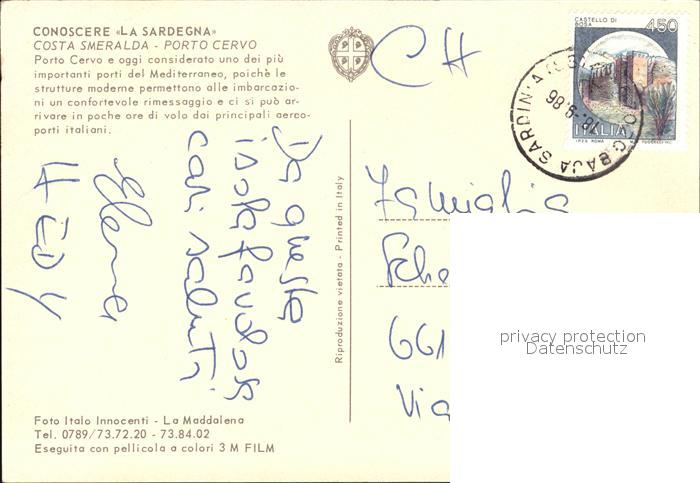 CONOSCERE «LA SARDEGNA»
COSTA SMERALDA - PORTO CERVO
Porto Cervo e oggi considerato uno dei più
importanti porti del Mediterraneo, poichè le
strutture moderne permettono alle imbarcazio-
ni un confortevole rimessaggio e ci si può ar-
rivare in poche ore di volo dai principali aero-
porti italiani.
CH
CASTELLO DI
BOSA
450
ITALIA
I.P.Z.S. ROMA
BAJA SARDINIA
8.9.86
Da questa
isola favolosa
cari saluti
Elena
Riproduzione vietata - Printed in Italy
Famiglia
Sche
661
Via
privacy protection
Datenschutz
Foto Italo Innocenti - La Maddalena
Tel. 0789/73.72.20 - 73.84.02
Eseguita con pellicola a colori 3 M FILM